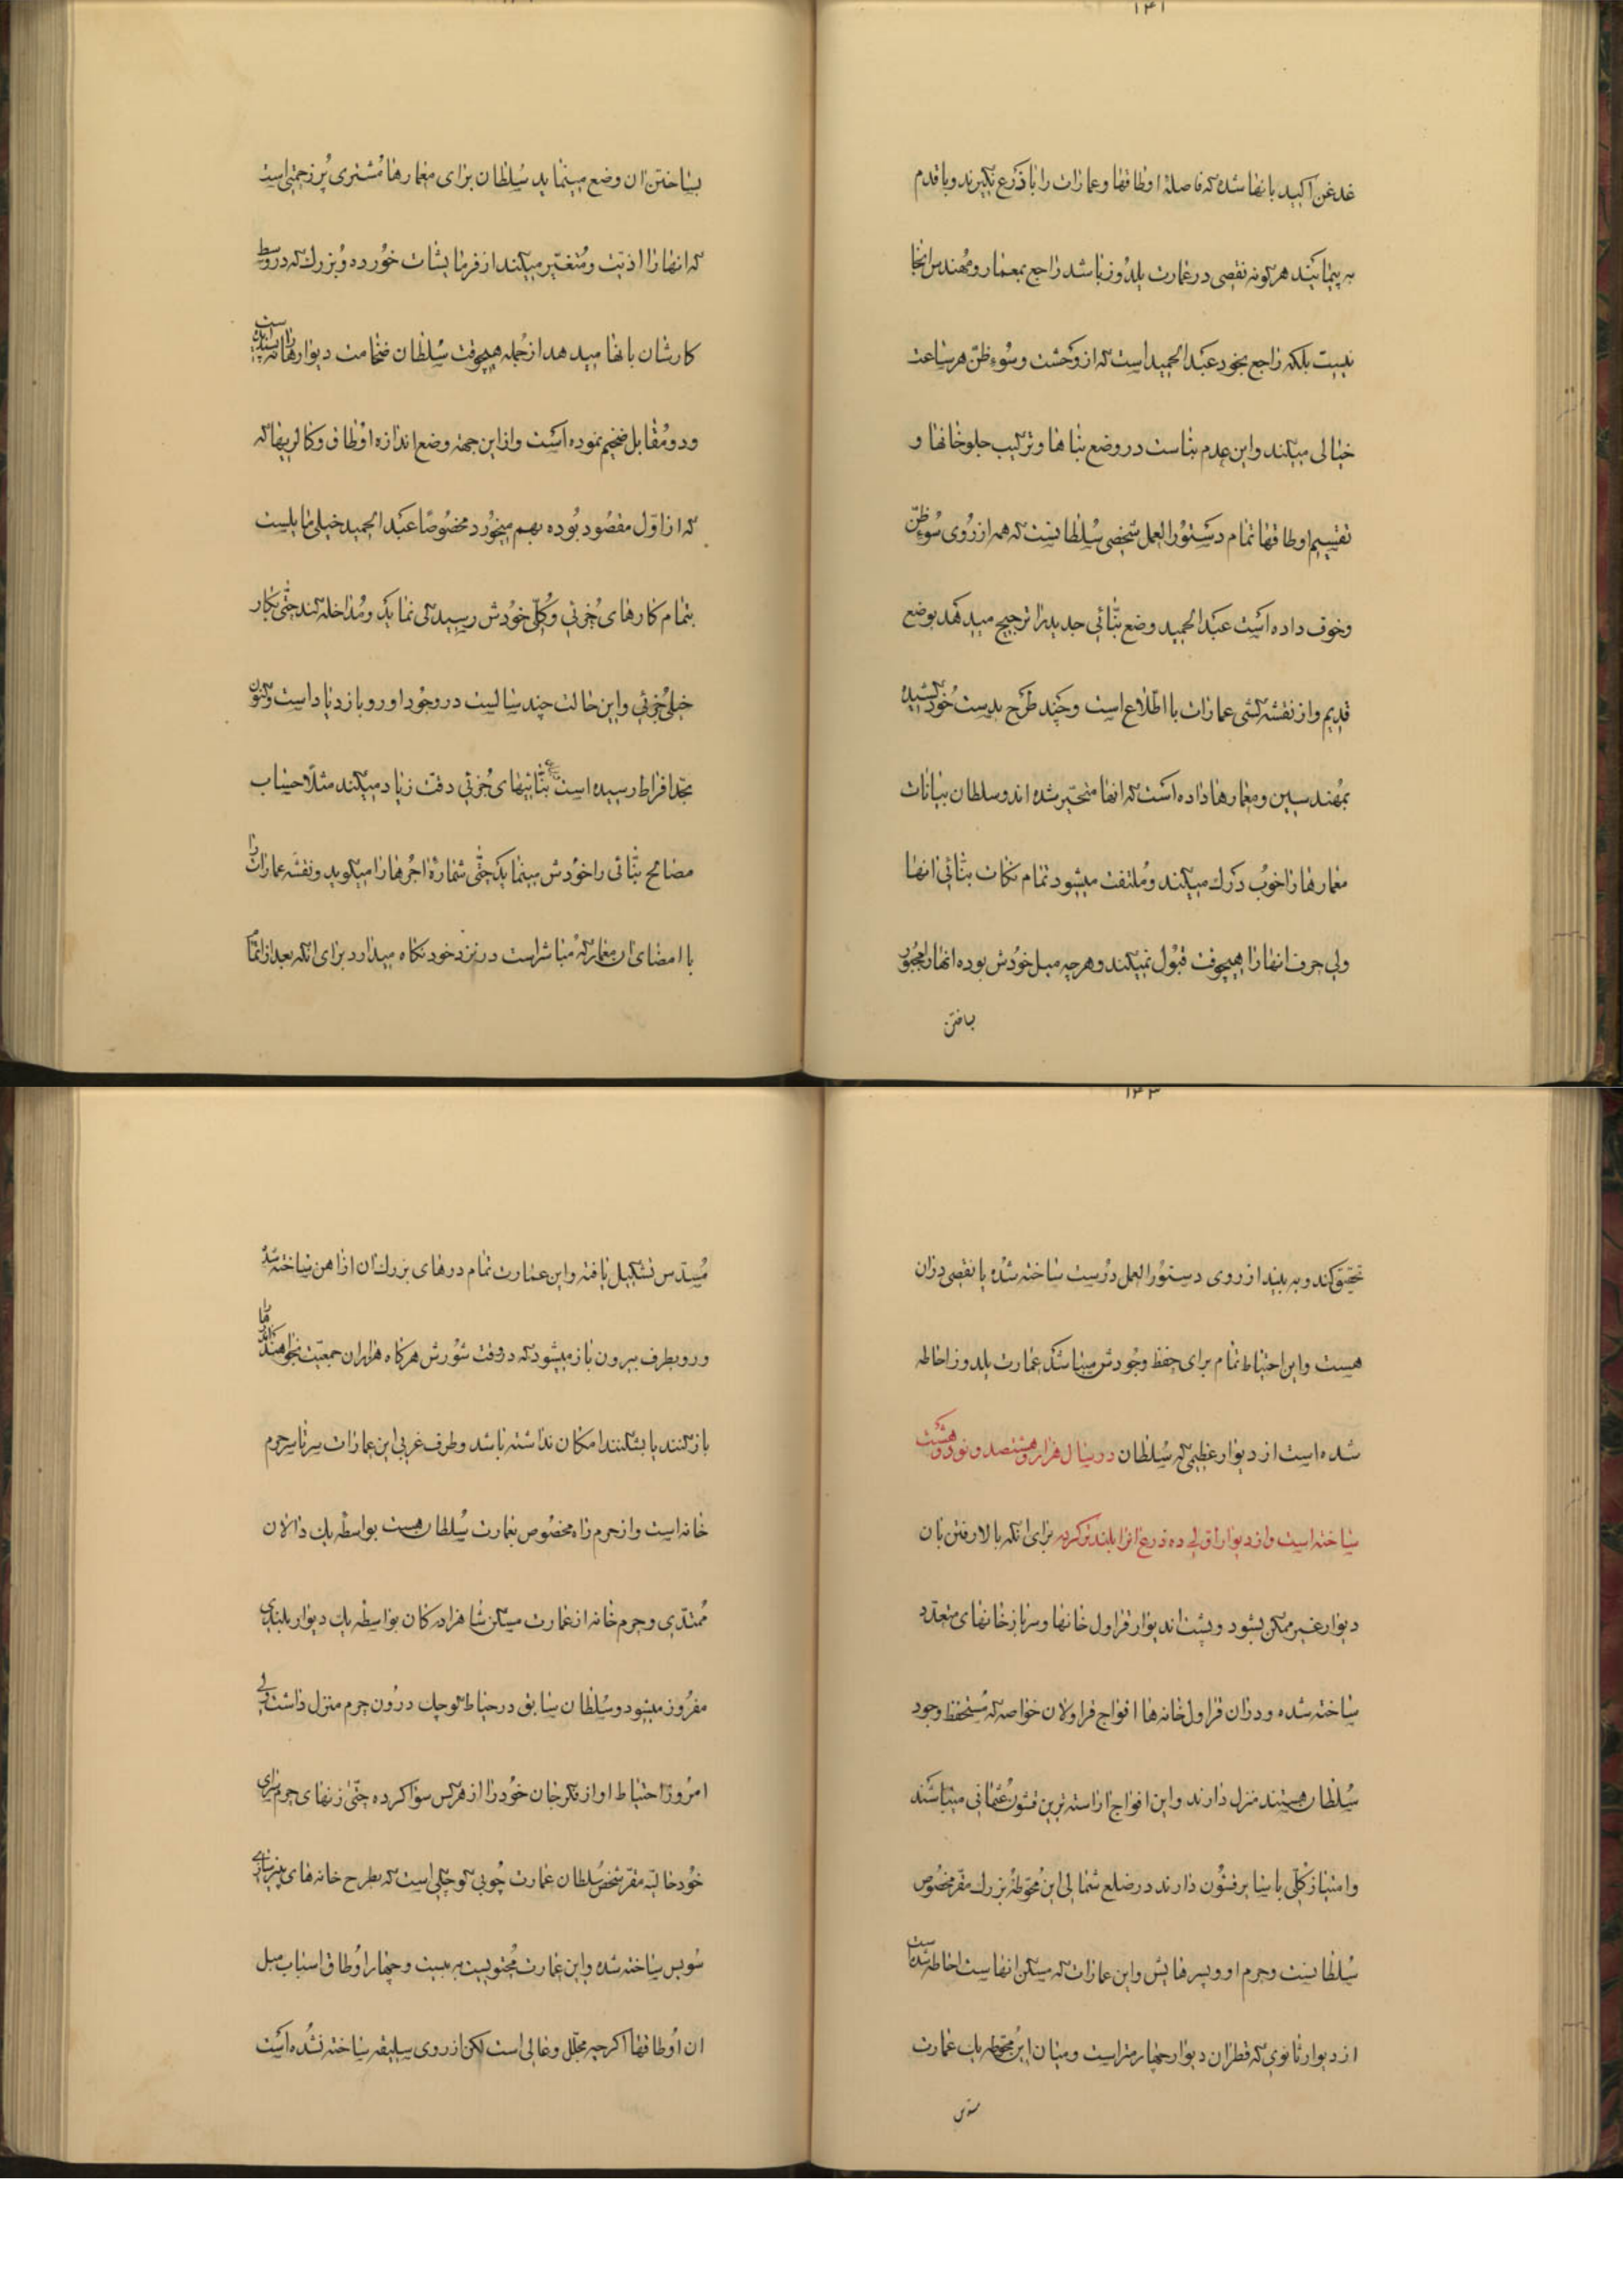 ۱۴۱
غدغن اکید بانها شده که فاصلهٔ اوطاقها و عمارات را با ذرع نگیرند و با قدم
به پیمایند هر گونه نقصی در عمارت یلدوز باشد راجع بمعمار و مهندس انجا
نیست بلکه راجع بخود عبدالحمید است که از وحشت و سوءظن هر ساعت
خیالی میکند و این عدم تناسب در وضع بناها و ترکیب جلوخانها و
تقسیم اوطاقها تمام دستورالعمل شخصی سلطانیست که همه از روی سوءظن
و خوف داده است عبدالحمید وضع بنّائی جدید را ترجیح میدهد بوضع
قدیم و از نقشه کشی عمارات با اطّلاع است و چند طرح بدست خود کشیده
بمهندسین و معمارها داده است که انها متحیّر شده اند و سلطان بیانات
معمارها را خوب درک میکند و ملتفت میشود تمام نکات بنّائی انها
ولی حرف انها را هیچوقت قبول نمیکند و هرچه میل خودش بوده انها را مجبور
بساختن
بساختن ان وضع مینماید سلطان برای معمارها مشتری پر زحمتی است
که انها را اذیّت و متغیّر میکند از فرمایشات خورده و بزرک که در وسط
کارشان بانها میدهد از جمله هیچوقت سلطان ضخامت دیوارها را نپسندیده است
و دو مقابل ضخیم نموده است و از این جهة وضع اندازه اوطاق و کالریها که
که از اوّل مقصود بوده بهم میخورد مخصوصًا عبدالحمید خیلی مایلست
بتمام کارهای جزئی و کلّی خودش رسیدگی نماید و مداخله کند حتّی بکار
خیلی جزئی و این حالت چند سالیست در وجود او رو بازدیاد است و کنون
بحدّ افراط رسیده است بنّائیهای جزئی دقت زیاد میکند مثلًا حساب
مصالح بنّائی را خودش مینماید حتّی شمارهٔ اجرها را میگوید و نقشه عمارات را
با امضای ان معمار که مباشر است در نزد خود نگاه میدارد برای انکه بعد از اتمام
۱۴۳
تحقیق کند و به بیند از روی دستورالعمل درست ساخته شده یا نقصی در ان
هست و این احتیاط تمام برای حفظ وجودش میباشد عمارت یلدوز احاطه
شده است از دیوار عظیمی که سلطان در سال هزار و هشتصد و نود و هشت
ساخته است و از دیوار اوّلی ده ذرع انرا بلندتر کرده برای انکه بالا رفتن بان
دیوار غیر ممکن بشود و پشت اندیوار قراول خانها و سربازخانهای متعدّد
ساخته شده و در ان قراول خانه ها افواج قراولان خواصه که مستحفظ وجود
سلطان هستند منزل دارند و این افواج اراسته ترین قشون عثمانی میباشند
و امتیاز کلّی با سایر قشون دارند در ضلع شمالی این محوّطهٔ بزرک مقرّ مخصوص
سلطانیست و حرم او و پسرهایش و این عمارات که مسکن انهاست احاطه شده است
از دیوار ثانوی که قطر ان دیوار چهار متر است و میان این محوّطه یک عمارت
مسدّس
مسدّس تشکیل یافته و این عمارت تمام درهای بزرک ان از اهن ساخته شده
و رو بطرف بیرون باز میشود که در وقت شورش هرگاه هزاران جمعیّت بخواهند انها را
باز کنند یا بشکنند امکان نداشته باشد و طرف غربی این عمارات سرتاسر حرم
خانه است و از حرم راه مخصوص بعمارت سلطان هست بواسطه یک دالان
ممتدّی و حرم خانه از عمارت مسکن شاهزادکان بواسطه یک دیوار بلندی
مفروز میشود و سلطان سابق در حیاط کوچک درون حرم منزل داشت ولی
امروز احتیاط او از فکر جان خود را از هرکس سوا کرده حتّی از زنهای حرم سرای
خود خالیّه مقرّ شخص سلطان عمارت چوبی کوچکی است که بطرح خانه های ییلاقی
سویس ساخته شده و این عمارت محتویست به بیست و چهار اوطاق اسباب مبل
ان اوطاقها اگرچه مجلّل و عالی است لکن از روی سلیقه ساخته نشده است